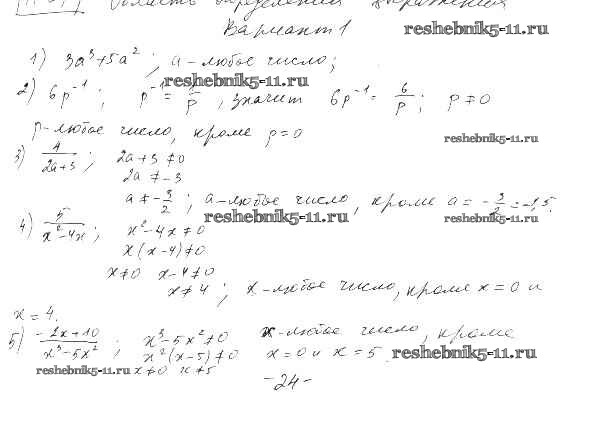 Область определения выражения
Вариант 1
reshebnik5-11.ru
1) 3a³+5a²; a-любое число;
reshebnik5-11.ru
2) 6p⁻¹; p⁻¹ = 1/p, значит 6p⁻¹ = 6/p; p≠0
p-любое число, кроме p=0
reshebnik5-11.ru
3) 4/(2a+3); 2a+3≠0
2a≠-3
a≠-3/2; a-любое число, кроме a=-3/2=-1,5.
reshebnik5-11.ru
reshebnik5-11.ru
4) 5/(x²-4x); x²-4x≠0
x(x-4)≠0
x≠0 x-4≠0
x≠4; x-любое число, кроме x=0 и
x=4.
5) (-2x+10)/(x³-5x²); x³-5x²≠0 x-любое число, кроме
x²(x-5)≠0 x=0 и x=5
reshebnik5-11.ru
reshebnik5-11.ru
x≠0 x≠5
-24-